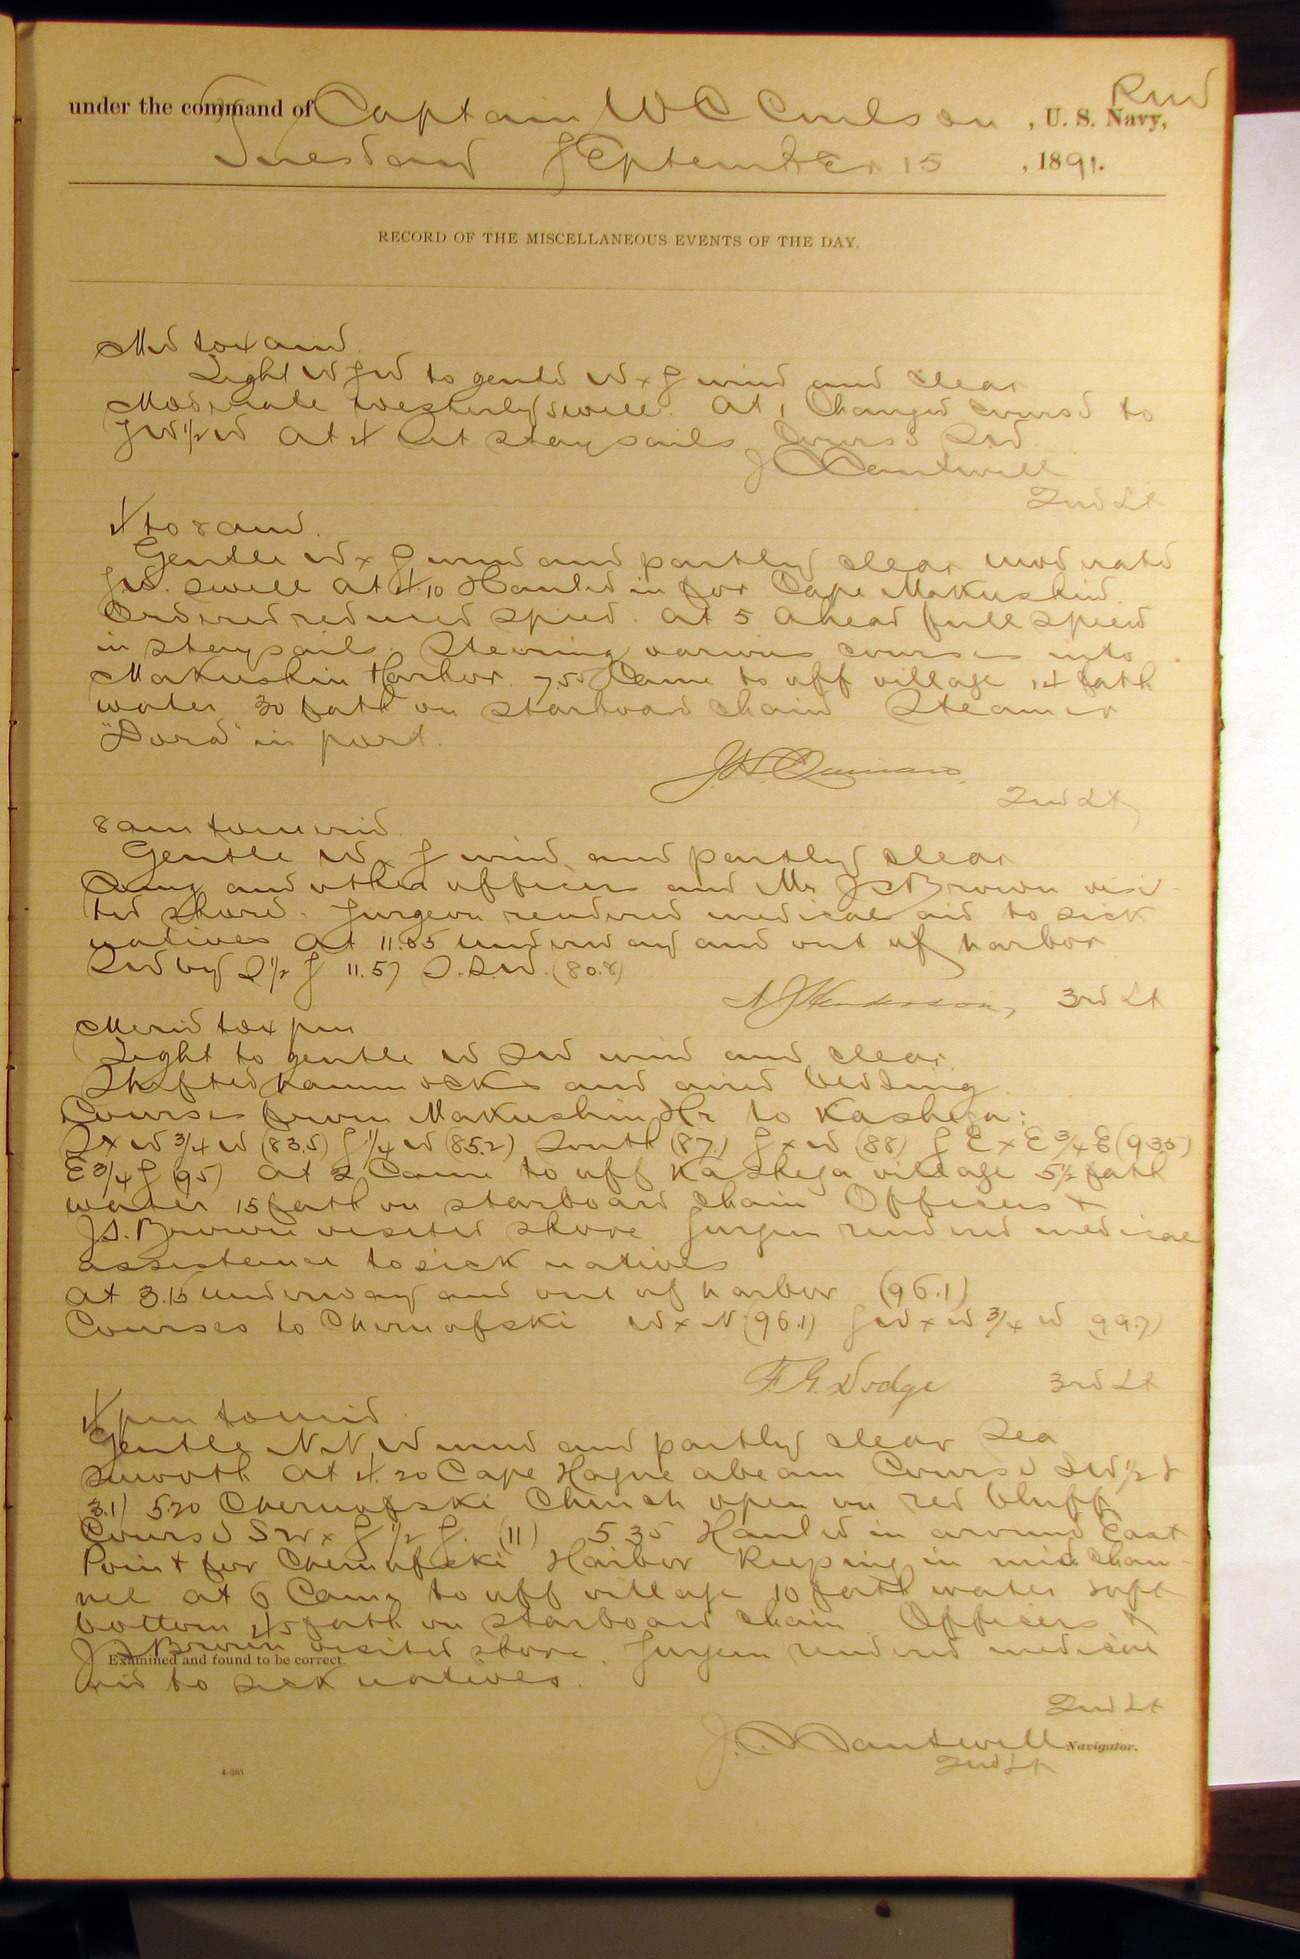 under the command of Captain W C Coulson , U. S. Navy, Rev
Tuesday September 15 , 1891.
RECORD OF THE MISCELLANEOUS EVENTS OF THE DAY.
Mid to 4 am
Light W SW to gentle W x S wind and clear
Moderate westerly swell. At 1 Changed course to
SW 1/2 W At 4 Set stay sails Course Sd.
J C Cantwell
2nd Lt
4 to 8 am.
Gentle W x S wind and partly clear moderate
SW. swell At 4.10 Hauled in for Cape Makushin
Ordered reduced speed. At 5 Ahead full speed
in staysails. Steering various courses into
Makushin Harbor 7 50 Came to off village 14 fath
water 30 fath on starboard chain Steamer
"Dora" in port.
J H Quinan
2nd Lt
8 am to merid.
Gentle W x S wind and partly clear
Comg and other officers and Mr J S Brown visi-
ted shore. Surgeon rendered medical aid to sick
natives At 11.05 underway and out of harbor
Sd by S 1/2 S 11.57 (80.8)
3rd Lt
Merid to 4 pm
Light to gentle W Sd wind and clear
Shifted hammocks and aired bedding
Courses from Makushin Hr to Kashega:
S x W 3/4 W (83.5) S 1/4 W (85.2) South (87.) S x W (88) S E x E 3/4 E (93.5)
E 3/4 S (95) At 2 Came to off Kashega village 5 1/2 fath
water 15 fath on starboard chain Officers &
J S. Brown visited shore Surgeon rendered medical
assistance to sick natives
At 3.15 underway and out of harbor (96.1)
Courses to Chernofski W x N (96.1) SW x W 3/4 W (99.7)
F. G. Dodge 3rd Lt
4 pm to mid.
Gentle N N W wind and partly clear Sea
smooth At 4.20 Cape Hague abeam Course SW 1/2 S
(3.1) 5.20 Chernofski Church open on red bluff
Course SW x S 1/2 S. (11) 5 35 Hauled in around East
Point for Chernofski Harbor Keeping in mid chan-
nel at 6 Came to off village 10 fath water soft
bottom 45 fath on starboard chain Officers &
J S Brown visited shore. Surgeon rendered medical
Examined and found to be correct.
aid to sick natives.
2nd Lt
J. C. Cantwell Navigator.
2nd Lt
4—265